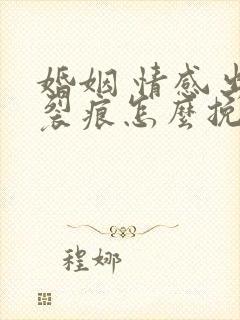 婚姻情感出
裂痕怎麼挽
程娜